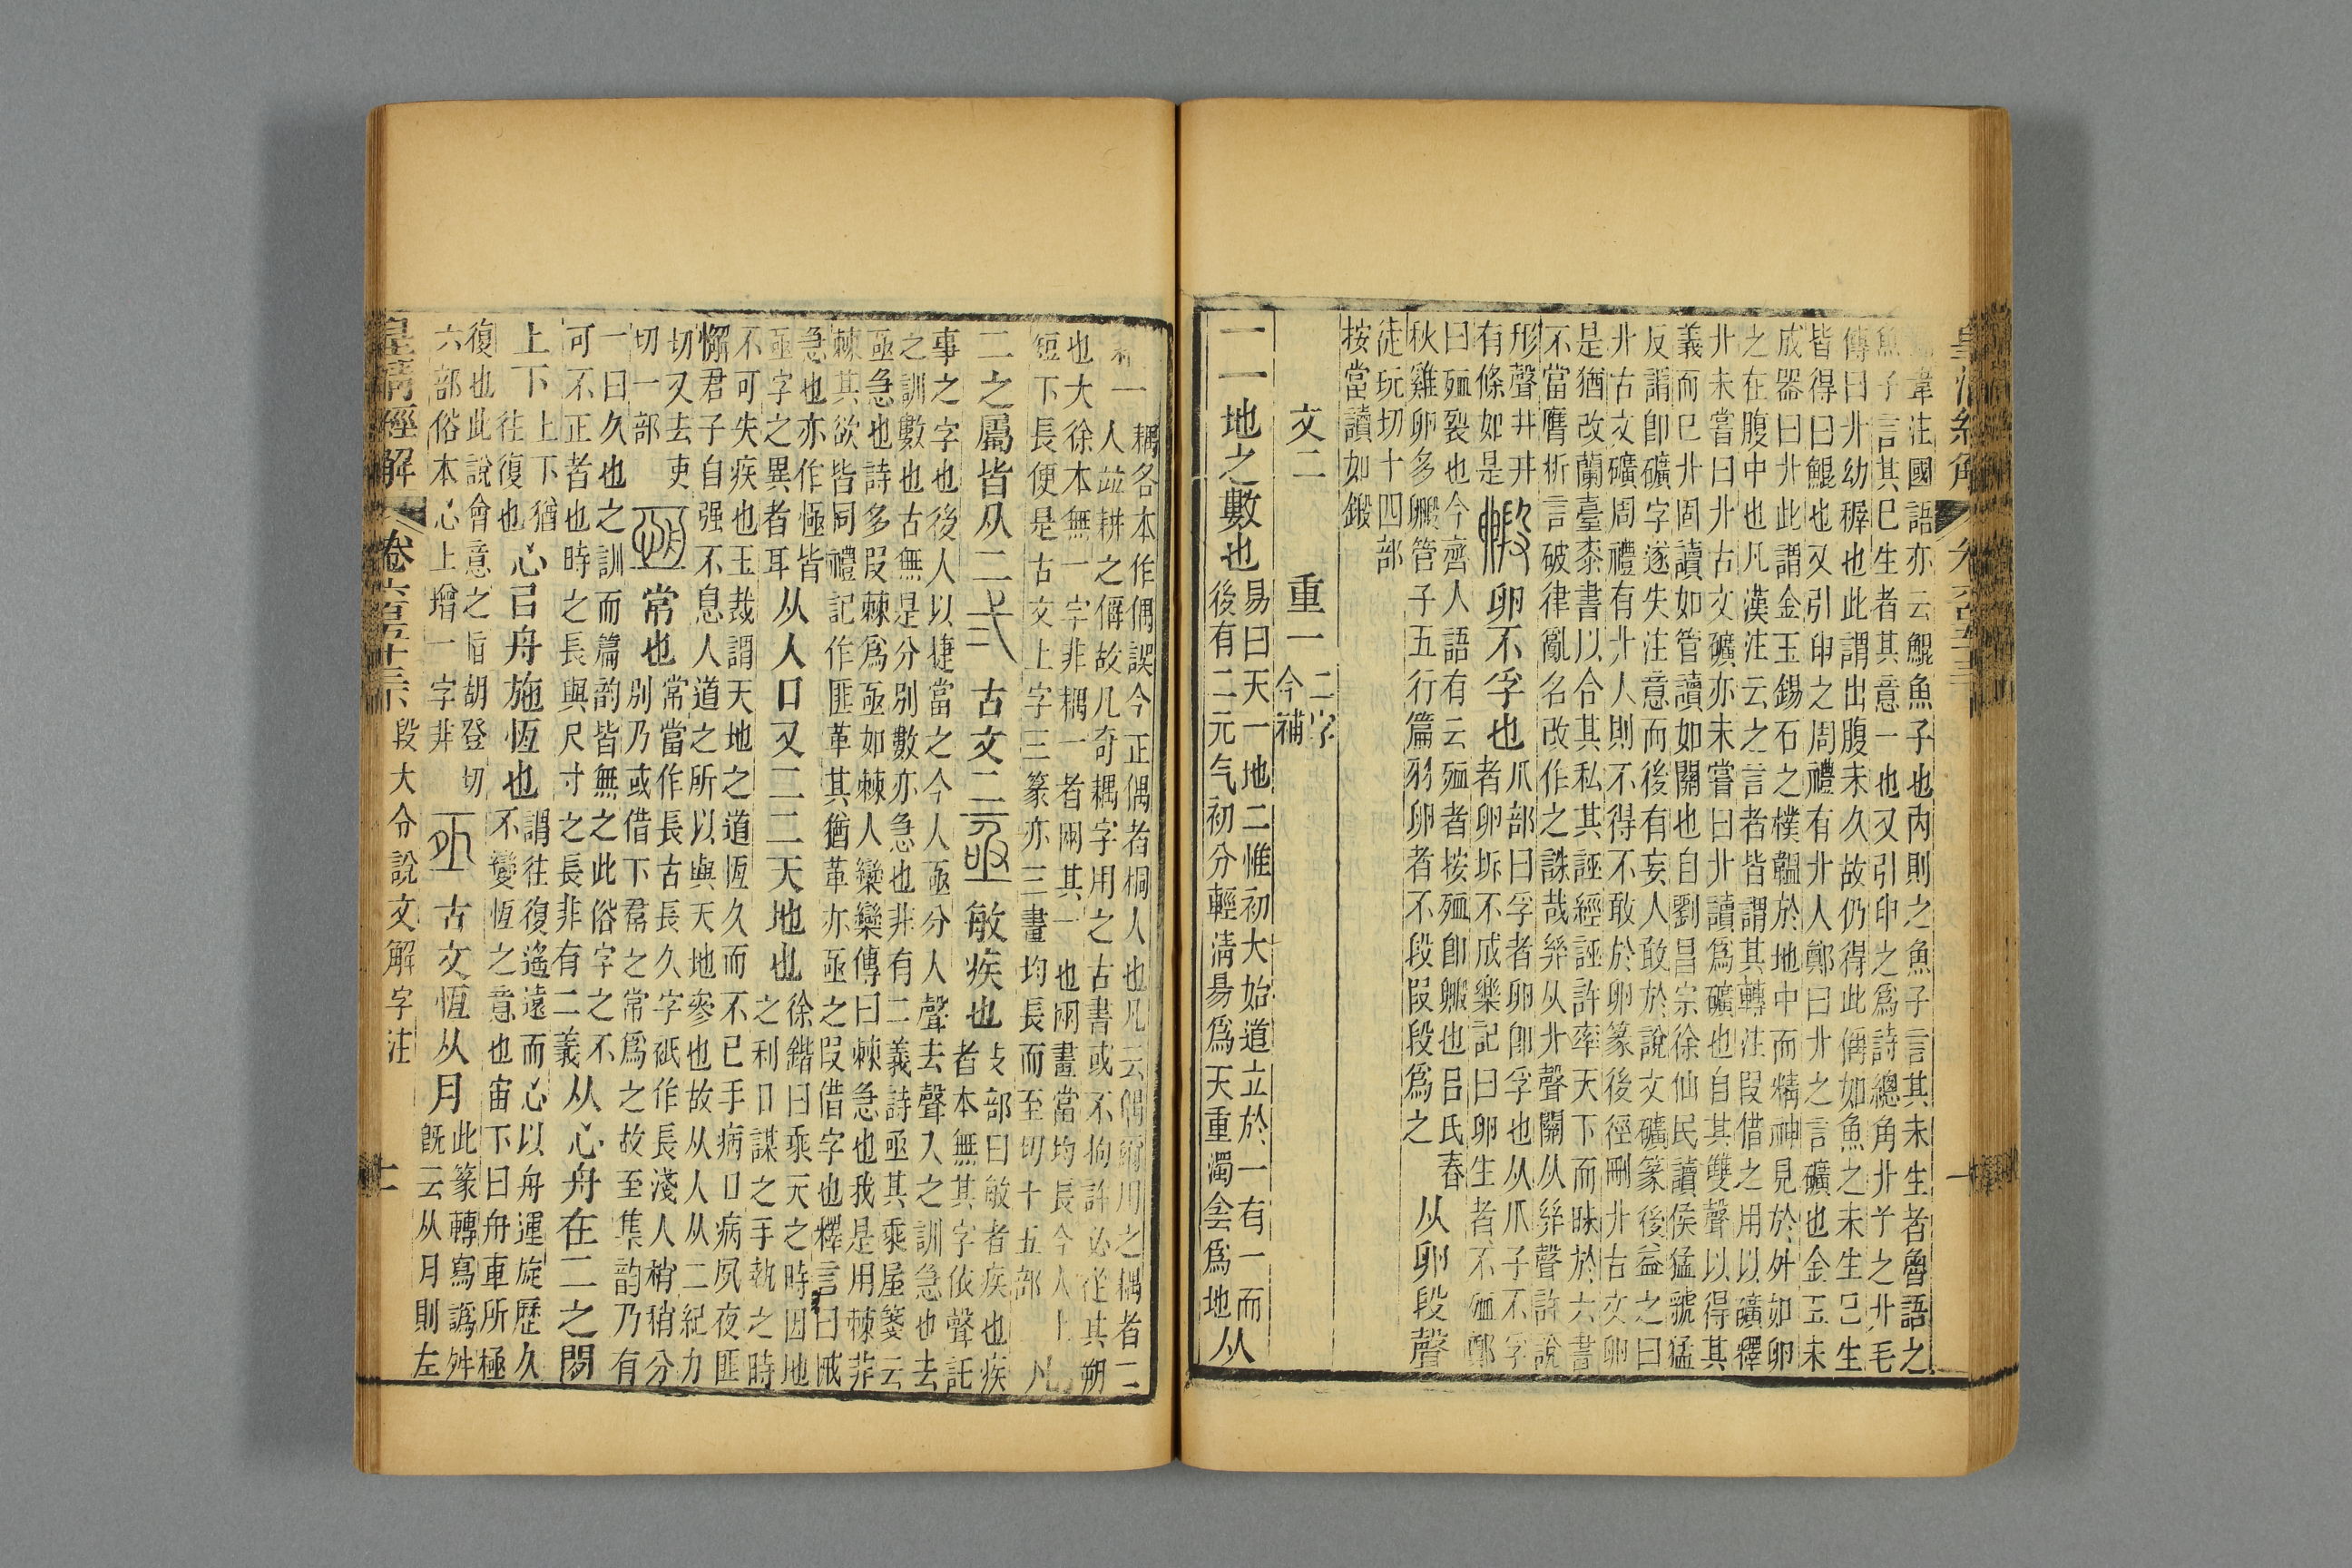 皇清經解 卷六百五十三
韋注國語亦云鯤魚子也內則之魚子言其未生者魯語之
魚子言其已生者其意一也又引申之爲詩總角丱兮之丱毛
傳曰丱幼穉也此謂出腹未久故仍得此偁如魚之未生已生
皆得曰鯤也又引申之周禮有丱人鄭曰丱之言礦也金玉未
成器曰丱此謂金玉錫石之樸韞於地中而精神見於外如卵
之在腹中也凡漢注云之言者皆謂其轉注叚借之用以礦釋
丱未嘗曰丱古文礦亦未嘗曰丱讀爲礦也自其雙聲以得其
義而已丱固讀如管讀如關也自劉昌宗徐仙民讀侯猛虢猛
反謂卽礦字遂失注意而後有妄人敢於說文礦篆後益之曰
丱古文礦周禮有丱人則不得不敢於卵篆後徑刪丱古文卵
是猶改蘭臺桼書以合其私其誣經誣許率天下而昧於六書
不當膺析言破律亂名改作之誅哉𢇇从丱聲關从𢇇聲許說
形聲井井
有條如是
毈 卵不孚也
爪部曰孚者卵卽孚也从爪子不孚
者卵坼不成樂記曰卵生者不殈鄭
曰殈裂也今齊人語有云殈者按殈卽毈也呂氏春
秋雞卵多毈管子五行篇羽卵者不段叚段爲之
从卵段聲
徒玩切十四部
按當讀如鍛
文二 重一
二字
今補
二 地之數也
易曰天一地二惟初大始道立於一有一而
後有二元气初分輕清易爲天重濁侌爲地
从
耦各本作偶誤今正偶者桐人也凡云偶爾用之耦者二
人竝耕之偁故凡奇耦字用之古書或不拘許必從其朔
也大徐本無一字非耦一者兩其一也兩畫當均長今人上
短下長便是古文上字三篆亦三畫均長而至切十五部
凡
二之屬皆从二 弍 古文二 亟 敏疾也
攴部曰敏者疾也疾
者本無其字依聲託
事之字也後人以捷當之今人亟分入聲去聲入之訓急也去
之訓數也古無是分別數亦急也非有二義詩亟其乘屋箋云
亟急也詩多叚棘爲亟如棘人欒欒傳曰棘急也我是用棘非
棘其欲皆同禮記作匪革其猶革亦亟之叚借字也釋言曰悈
急也亦作㥛皆
亟字之異者耳
从人口又二二天地也
徐鍇曰乘天之時因地
之利口謀之手執之時
不可失疾也玉裁謂天地之道恆久而不已手病口病夙夜匪
懈君子自强不息人道之所以與天地參也故从人从二紀力
切又去吏
切一部
恆 常也
常當作長古長久字祇作長淺人稍稍分
別乃或借下帬之常爲之故至集韵乃有
一曰久也之訓而篇韵皆無之此俗字之不
可不正者也時之長與尺寸之長非有二義
从心舟在二之閒
上下
上下猶
往復也
心㠯舟施恆也
謂往復遙遠而心以舟運旋歷久
不變恆之意也宙下曰舟車所極
復也此說會意之恉胡登切
六部俗本心上增一字非
古文恆从月
此篆轉寫譌舛
旣云从月則左
皇清經解 卷六百五十三 段大令說文解字注 十一